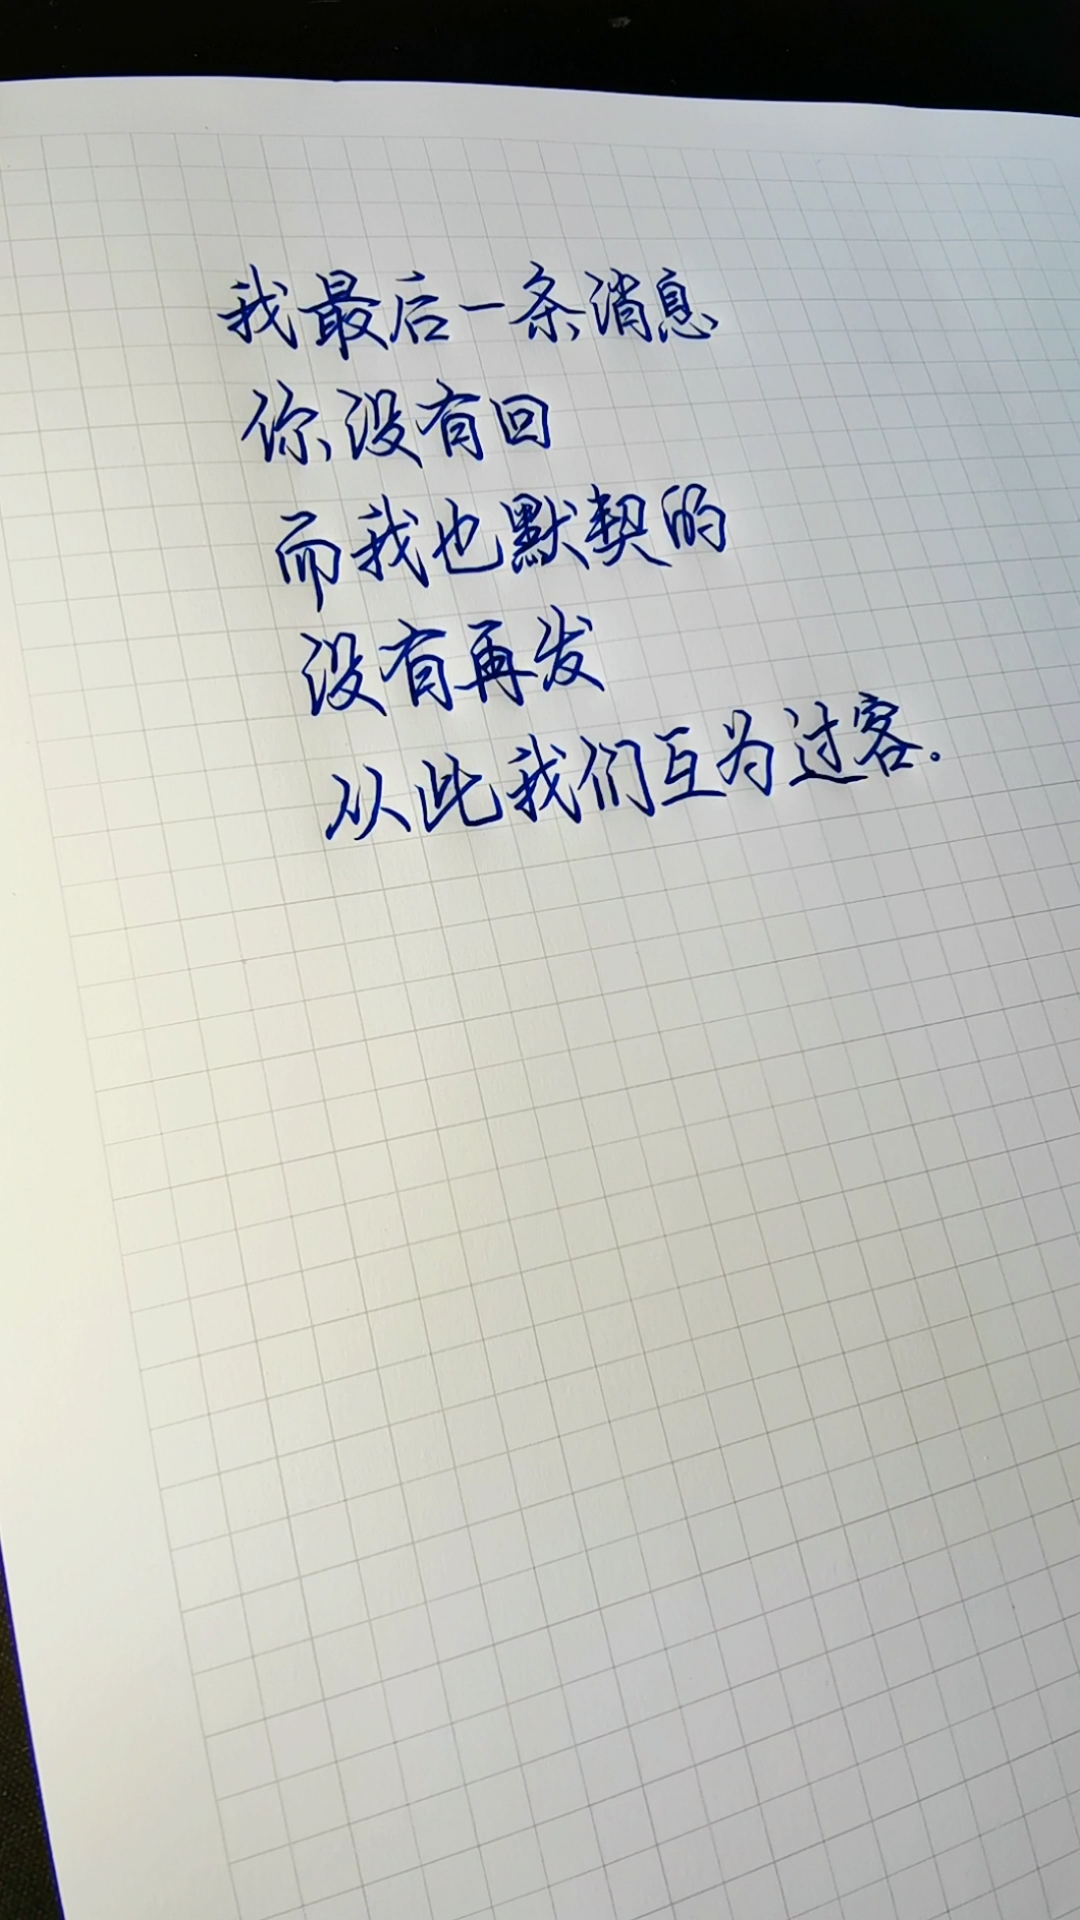 我最后一条消息
你没有回
而我也默契的
没有再发
从此我们互为过客.